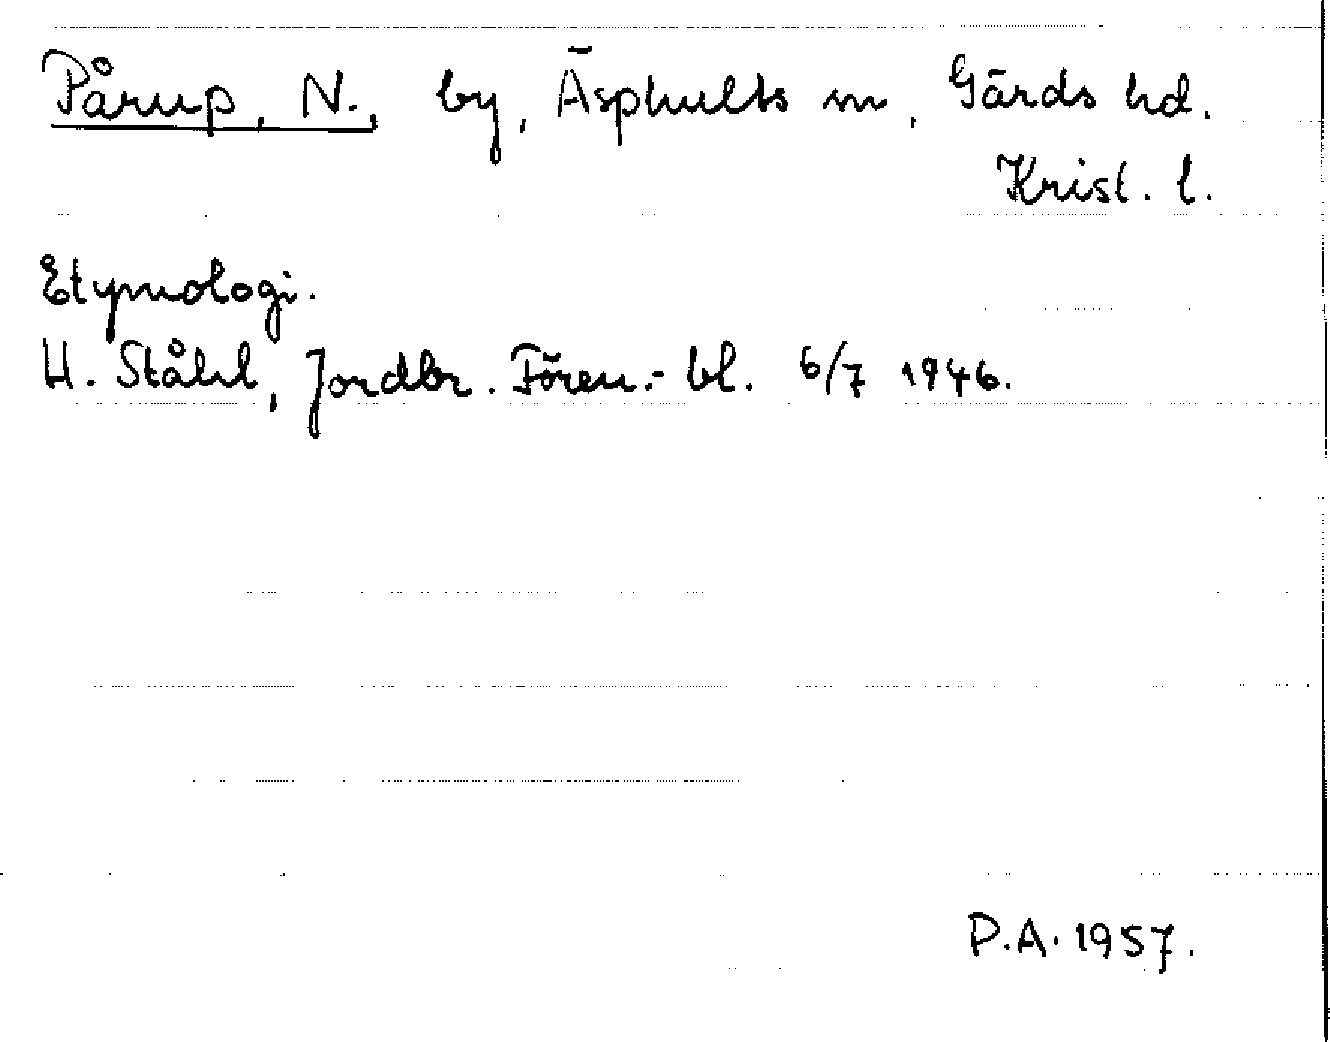 Pårup, N., by, Äsphults sn, Gärds hd.
Krist. l.
Etymologi.
H. Ståhl, Jordbr. Fören.-bl. 6/7 1946.
P.A. 1957.